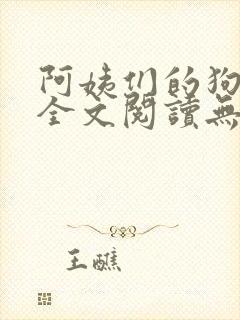 阿姨们的狗
全文閱讀無
王醮